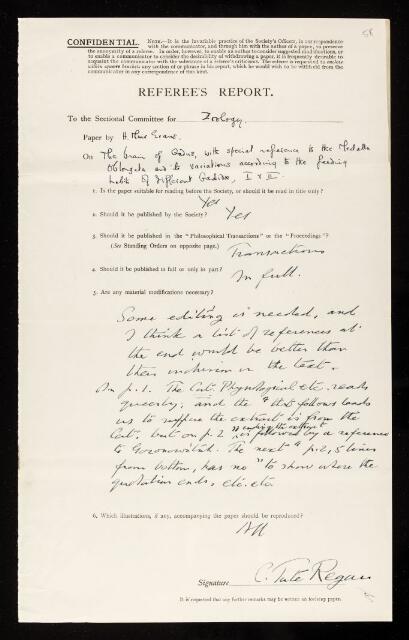 58
CONFIDENTIAL. NOTE.—It is the invariable practice of the Society's Officers, in correspondence
with the communicator, and through him with the author of a paper, to preserve
the anonymity of a referee. In order, however, to enable an author to consider suggested modifications, or
to enable a communicator to consider the desirability of withdrawing a paper, it is frequently desirable to
acquaint the communicator with the substance of a referee's criticisms. The referee is requested to enclose
within square brackets any section of or phrase in his report, which he would wish to be withheld from the
communicator in any correspondence of this kind.
REFEREE'S REPORT.
To the Sectional Committee for Zoology.
Paper by H. Muir Evans.
On The brain of Gadus, with special reference to the Medulla
Oblongata and its variations according to the feeding
habits of different Gadidae, I & II.
1. Is the paper suitable for reading before the Society, or should it be read in title only?
Yes
2. Should it be published by the Society? Yes
3. Should it be published in the "Philosophical Transactions" or the "Proceedings"?
(See Standing Orders on opposite page.) Transactions
4. Should it be published in full or only in part?
In full.
5. Are any material modifications necessary?
Some editing is needed, and
I think a list of references at
the end would be better than
their inclusion in the text.
On p. 1. The Cat. Physiological etc. reads
queerly; and the " that follows leads
us to suppose the extract is from the
Cat., but on p. 2 " ending the extract
is followed by a reference
to Goronowitsch. The next " p. 2, 5 lines
from bottom, has no " to show where the
quotation ends, etc. etc.
6. Which illustrations, if any, accompanying the paper should be reproduced?
All
Signature C. Tate Regan
It is requested that any further remarks may be written on foolscap paper.